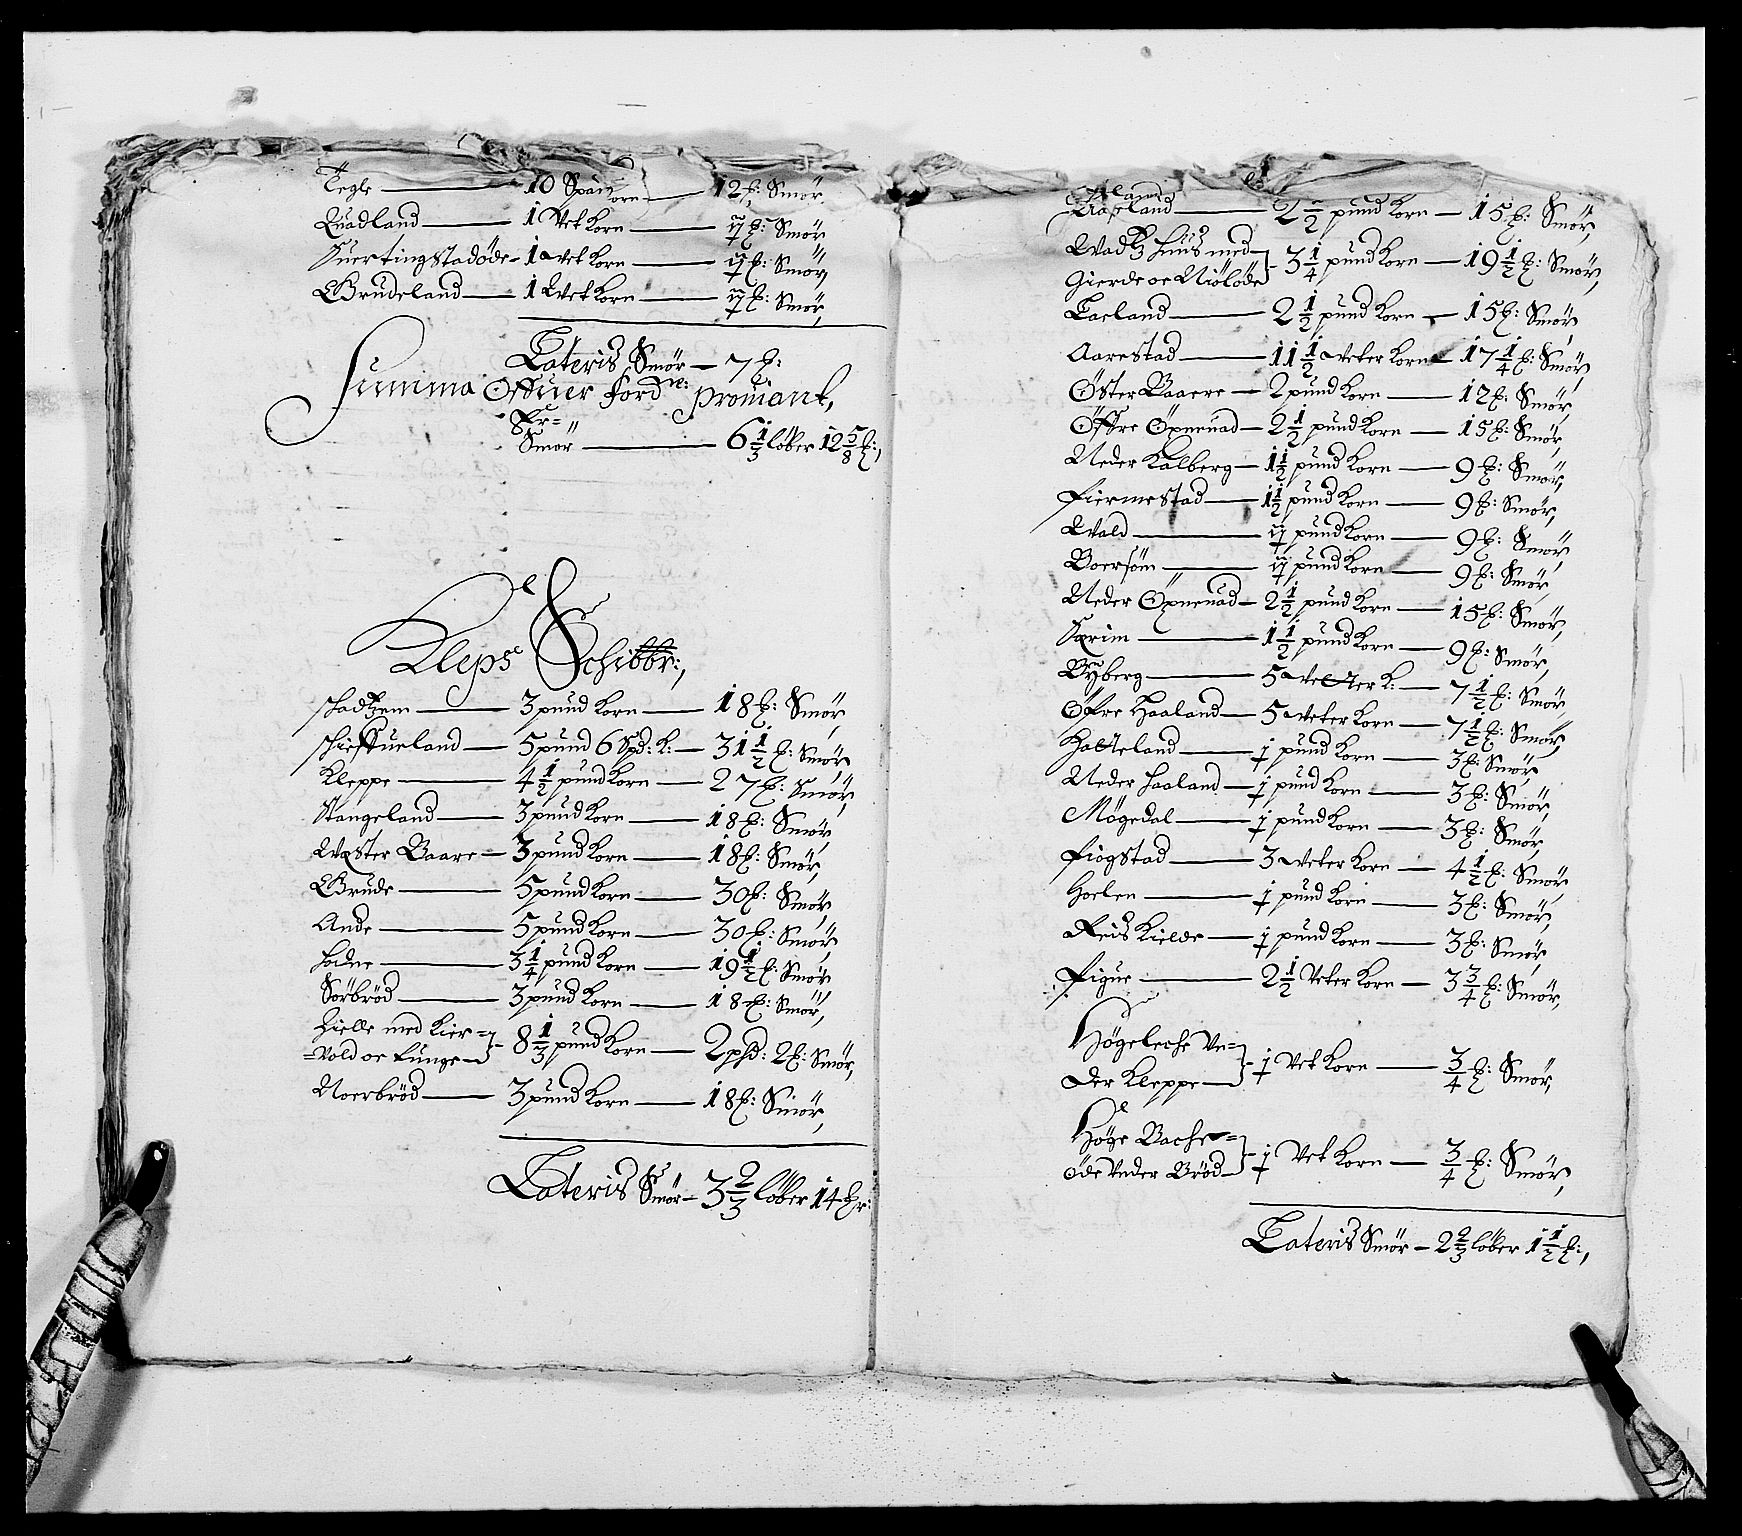 Tegle — 10 Span Korn — 12 ℔: Smör
Quadland — 1 Vet Korn — 1½ ℔: Smör
Suertingstadöde — 1 Vet Korn — 1½ ℔: Smör,
Brudeland — 1 Vet Korn — 1½ ℔: Smör,
Lateris Smör — 7 ℔:
Summa Offuer Ford:ne: Proviant,
Smör — 6 1/3 löber 12 5/8 ℔:,
Kleps Schibbr:,
Stadtzem — 3 pund Korn — 18 ℔: Smör
Schieffueland — 5 pund 6 Spd: K: — 31 1/2 ℔: Smör
Kleppe — 4 1/2 pund Korn — 27 ℔: Smör
Stangeland — 3 pund Korn — 18 ℔: Smör,
Wester Baare — 3 pund Korn — 18 ℔: Smör,
Grude — 5 pund Korn — 30 ℔: Smör,
Ande — 5 pund Korn — 30 ℔: Smör,
Hodne — 3 1/4 pund Korn — 19 1/2 ℔: Smör
Sörbröd — 3 pund Korn — 18 ℔: Smör,
Hielle med Kier=
=Vold oc Funge — 8 1/3 pund Korn — 2 psd: 2 ℔: Smör,
Noerbröd — 3 pund Korn — 18 ℔: Smör,
Lateris Smör — 3 2/3 löber 14 ℔r:
2 1/2 pund Korn — 15 ℔: Smör,
Wadtz Huus med
Gierde oc Niölöde — 3 1/4 pund Korn — 19 1/2 ℔: Smör,
Laeland — 2 1/2 pund Korn — 15 ℔: Smör
Aarestad — 11 1/2 Veter Korn — 17 1/4 ℔: Smör,
Öster Baare — 2 pund Korn — 12 ℔: Smör,
Öffre Öxneuad — 2 1/2 pund Korn — 15 ℔: Smör,
Neder Kalberg — 1 1/2 pund Korn — 9 ℔: Smör,
Fiermestad — 1 1/2 pund Korn — 9 ℔: Smör,
Wold — 1½ pund Korn — 9 ℔: Smör
Boersöm — 1½ pund Korn — 9 ℔: Smör
Neder Öxneuad — 2 1/2 pund Korn — 15 ℔: Smör,
Særim — 1 1/2 pund Korn — 9 ℔: Smör,
Byberg — 5 Veter K: — 7 1/2 ℔: Smör
Öffre Haaland — 5 Veter Korn — 7 1/2 ℔: Smör,
Halleland — ½ pund Korn — 3 ℔: Smör
Neder Haaland — ½ pund Korn — 3 ℔: Smör,
Mögedal — ½ pund Korn — 3 ℔: Smör,
Fiogstad — 3 Veter Korn — 4 1/2 ℔: Smör
Hoelen — ½ pund Korn — 3 ℔: Smör,
Reis Kielde — ½ pund Korn — 3 ℔: Smör
Figue — 2 1/2 Veter Korn — 3 3/4 ℔: Smör,
Högeloche Vn=
der Kleppe — ½ Vet Korn — 3/4 ℔: Smör,
Höge Bache=
öde Vnder Bröd — ½ Vet Korn — 3/4 ℔: Smör,
Lateris Smör — 2 2/3 löber 1 1/2 ℔:,